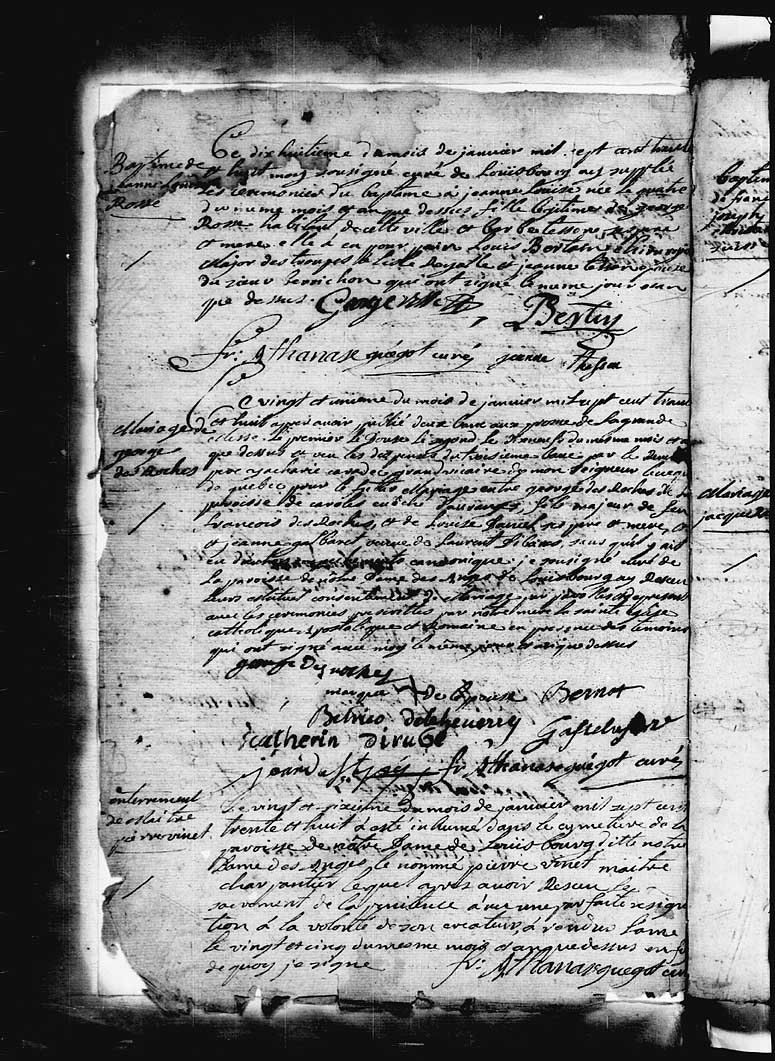 Baptime de
jeanne Louise
Rosse
Ce dix huitieme du mois de janvier mil sept cent trente
et huit moy sousigné curé de Louisbourg ay supplié
Les ceremonies du bapteme a jeanne Louise née le quatre
du meme mois et an que dessus fille legitime de
Rosse habitant de cette ville et barbe ses pere
et mere elle a eu pour parin Louis Bertin chirurgien
Major des troupes a Lisle Royalle et jeanne
du sieur berrichon qui ont signé le meme jour et an
que dessus. George Rosse Bertin
fr: Athanase guégot curé jeanne
Mariage de
george
des Roches
Ce vingt et unieme du mois de janvier mil sept cent trente
et huit apres avoir publié deux bans aux prosne de la grande
messe le premier le douse le segond le dixneuf du meme mois et an
que dessus et veu les dispenses du troisieme banc par le
pere zacharie caradec grand vicaire de mon seigneur leveque
de quebec pour le futur Mariage entre george des Roches de la
paroisse de caroles eveché davranches, fils majeur de feu
francois des Roches, et de Louise Daniel ses pere et mere,
et jeanne galbaret veuve de Laurent Ribere, sans quil y ait
eu dautres empechements canonique: je sousigné curé de
La paroisse de notre Dame des Anges de Louisbourg ay Receu
leurs mutuel consentement de Mariage par parolles de present
avec les ceremonies prescrittes par notre mere la sainte eglise
catholique Apostolique et Romaine en presence des temoins
qui ont signé avec moy le meme jour et an que dessus
george Des roches
marque + de Lepouse Bernot
Betrico detcheverry
Catherin Dirube
fr: Athanase guégot curé
enterrement
de Maitre
pierre vinet
Le vingt et sixieme du mois de janvier mil sept cent
trente et huit a esté inhumé dans le cymetiere de la
paroisse de notre Dame de Louis bourg ditte notre
Dame des Anges, le nommé pierre vinet maitre
charpantier lequel apres avoir Receu le
sacrement de la penitence a eu une parfaite resigna
tion a la volonté de son createur a rendu Lame
le vingt et cinq du mesme mois et an que dessus en foy
de quoy je signe fr: Athanase guégot curé
baptime
de franc
joseph
Mariage
jacque